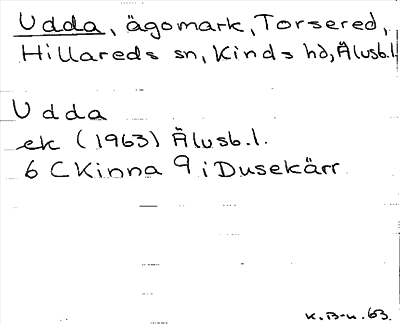 Udda, ägomark, Torsered,
Hillareds sn, Kinds hd, Älvsb.l.
Udda
ek (1963) Älvsb.l.
6 C Kinna 9 i Dusekärr
K.B-n. 63.